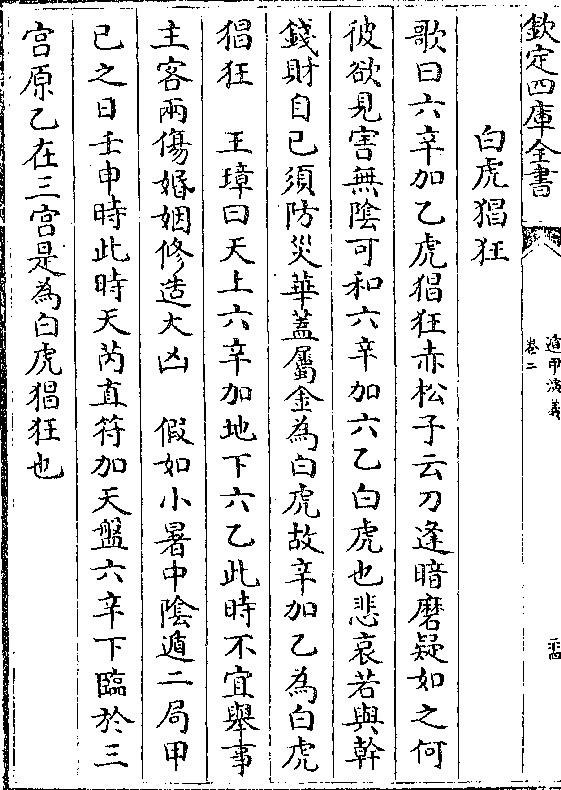 欽定四庫全書
遁甲演義
卷二
白虎猖狂
歌曰六辛加乙虎猖狂赤松子云刀逢暗磨疑如之何
彼欲見害無陰可和六辛加六乙白虎也悲哀若與幹
錢財自已須防災華蓋屬金為白虎故辛加乙為白虎
猖狂　王璋曰天上六辛加地下六乙此時不宜舉事
主客兩傷婚姻修造大凶　假如小暑中陰遁二局甲
已之日壬申時此時天芮直符加天盤六辛下臨於三
宫原乙在三宫是為白虎猖狂也